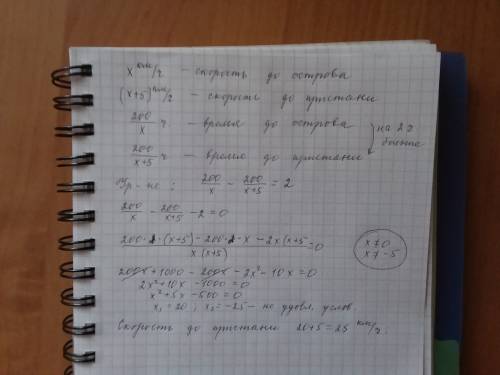 x км/ч - скорость до острова
(x+5) км/ч - скорость до пристани
200/x ч - время до острова
200/x+5 ч - время до пристани } на 2 ч больше
Ур-не: 200/x - 200/x+5 = 2
200/x - 200/x+5 - 2 = 0
200·(x+5) - 200·x - 2x(x+5 / x(x+5) = 0
x≠0
x≠-5
200x + 1000 - 200x - 2x² - 10x = 0
2x² + 10x - 1000 = 0
x² + 5x - 500 = 0
x₁ = 20 ; x₂ = -25 - не удовл. услов.
Скорость до пристани 20+5 = 25 км/ч.